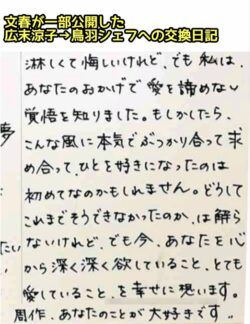 文春が一部公開した
広末涼子→鳥羽シェフへの交換日記
淋しくて悔しいけれど、でも私は、
あなたのおかげで愛を諦めない
覚悟を知りました。もしかしたら、
こんな風に本気でぶつかり合って求
め合って、ひとを好きになったのは
初めてなのかもしれません。どうして
これまでそうできなかったのか、は解ら
ないけれど、でも今、あなたを心
から深く深く欲していること、とても
愛していること、を幸せに想います。
周作、あなたのことが大好きです。
夢
たい